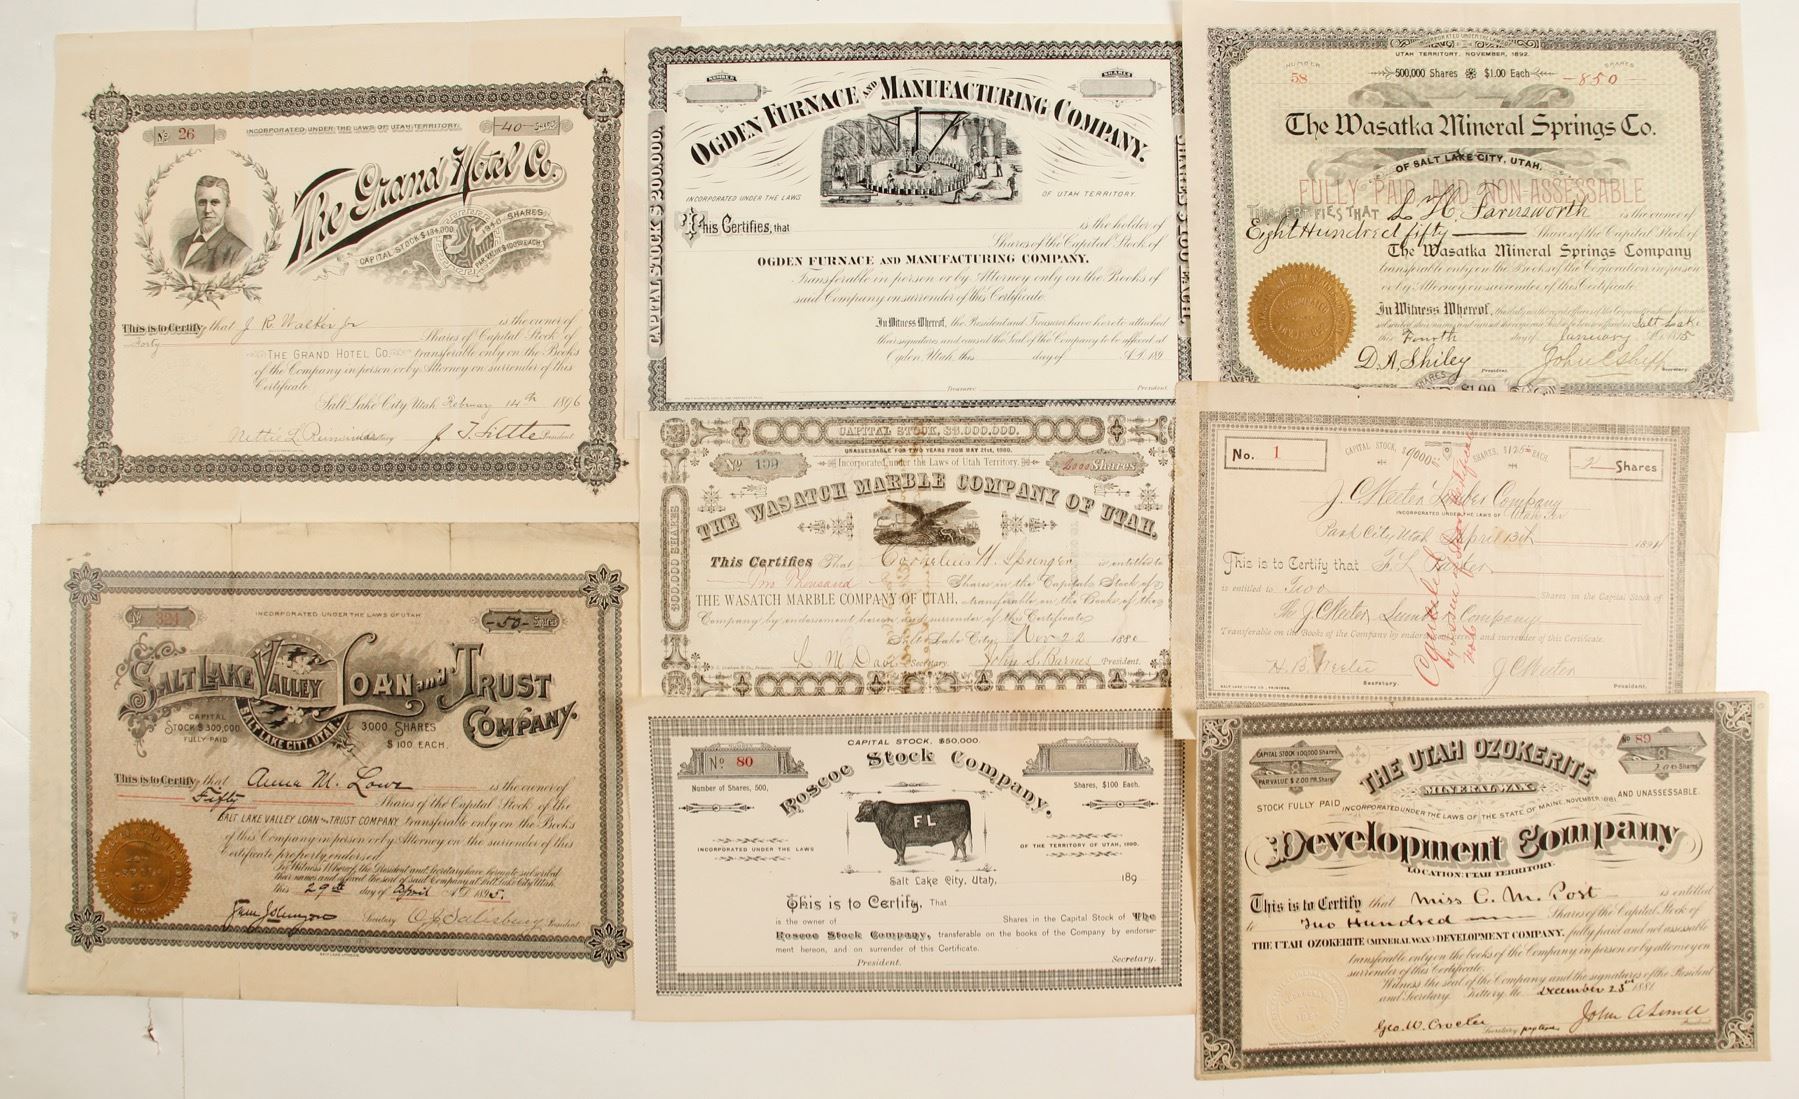 No. 26
INCORPORATED UNDER THE LAWS OF UTAH TERRITORY.
-40- Shares
The Grand Hotel Co.
CAPITAL STOCK $184,000.
1840 SHARES
PAR VALUE $100.00 EACH.
This is to Certify that J R Walker Jr is the owner of
Forty Shares of Capital Stock of
THE GRAND HOTEL CO. transferable only on the Books
of the Company in person or by Attorney on surrender of this
Certificate.
Salt Lake City Utah February 14th 1896
Secretary J T Little President
No. 324
INCORPORATED UNDER THE LAWS OF UTAH
-50- Shares
SALT LAKE VALLEY LOAN and TRUST
COMPANY.
SALT LAKE CITY, UTAH.
CAPITAL
STOCK $300,000.
FULLY PAID
3000 SHARES
$100 EACH.
This is to Certify that Anna M. Lowe is the owner of
Fifty Shares of the Capital Stock of the
SALT LAKE VALLEY LOAN and TRUST COMPANY. transferable only on the Books
of this Company in person or by Attorney on the surrender of this
Certificate properly endorsed.
In Witness Whereof, the President and Secretary have hereunto subscribed
their names and affixed the seal of said Company at Salt Lake City Utah
this 29th day of April A.D. 1895.
Secretary President
NUMBER
SHARES
OGDEN FURNACE AND MANUFACTURING COMPANY.
CAPITAL STOCK $200,000.
INCORPORATED UNDER THE LAWS
OF UTAH TERRITORY.
This Certifies, that is the holder of
Shares of the Capital Stock of
OGDEN FURNACE AND MANUFACTURING COMPANY.
Transferable in person or by Attorney only on the Books of
said Company on surrender of this Certificate.
In Witness Whereof, the President and Treasurer have hereto attached
their signatures and caused the Seal of the Company to be affixed at
Ogden, Utah, this day of A.D. 189
Treasurer President
CAPITAL STOCK, $4,000,000.
UNASSESSABLE FOR TWO YEARS FROM MAY 21st, 1880.
No 199
Incorporated under the Laws of Utah Territory.
2000 Shares
800,000 SHARES
THE WASATCH MARBLE COMPANY OF UTAH.
This Certifies That Cornelius H. Springer is entitled to
Two Thousand Shares in the Capital Stock of
THE WASATCH MARBLE COMPANY OF UTAH, transferable on the Books of the
Company by endorsement hereon and surrender of this Certificate.
Salt Lake City, Nov 22 1880
Secretary. John S. Barnes President.
CAPITAL STOCK, $50,000.
No 80
Roscoe Stock Company.
Number of Shares, 500,
Shares, $100 Each.
FL
INCORPORATED UNDER THE LAWS
OF THE TERRITORY OF UTAH, 1890.
Salt Lake City, Utah, 189
This is to Certify, That
is the owner of Shares in the Capital Stock of The
Roscoe Stock Company, transferable on the books of the Company by endorse-
ment hereon, and on surrender of this Certificate.
President. Secretary.
INCORPORATED UNDER THE LAWS
UTAH TERRITORY, NOVEMBER, 1892.
NUMBER
58
500,000 Shares $1.00 Each
SHARES
-850-
The Wasatka Mineral Springs Co.
OF SALT LAKE CITY, UTAH.
FULLY PAID AND NON-ASSESSABLE
THIS CERTIFIES THAT L H Farnsworth is the owner of
Eight Hundred fifty Shares of the Capital Stock of
The Wasatka Mineral Springs Company
transferable only on the Books of the Corporation in person
or by Attorney on surrender of this Certificate.
In Witness Whereof,
Salt Lake
this Fourth day of January
D. A. Shiley President. Secretary.
SHARES
$1.00
No. 1
CAPITAL STOCK, $9000
SHARES, $125 EACH.
2 Shares
INCORPORATED UNDER THE LAWS OF
Park City Utah April 13th 1894
This is to Certify that
is entitled to Two Shares in the Capital Stock of
Company
Transferable on the Books of the Company by endorsement hereon and surrender of this Certificate.
Secretary. President.
No 6
CAPITAL STOCK 100,000 Shares
PAR VALUE $2.00 PR. Share
No 89
200 Shares
THE UTAH OZOKERITE
MINERAL WAX.
STOCK FULLY PAID
AND UNASSESSABLE.
INCORPORATED UNDER THE LAWS OF THE STATE OF MAINE, NOVEMBER 1881
Development Company
LOCATION: UTAH TERRITORY.
This is to Certify that Miss C. M. Post is entitled
to Two Hundred Shares of the Capital Stock of
THE UTAH OZOKERITE (MINERAL WAX) DEVELOPMENT COMPANY, fully paid and not assessable
transferable only on the books of the Company in person or by attorney on
surrender of this Certificate.
Witness the seal of the Company and the signatures of the President
and Secretary. Kittery Me. December 23rd 1881
Geo. W. Secretary John A President